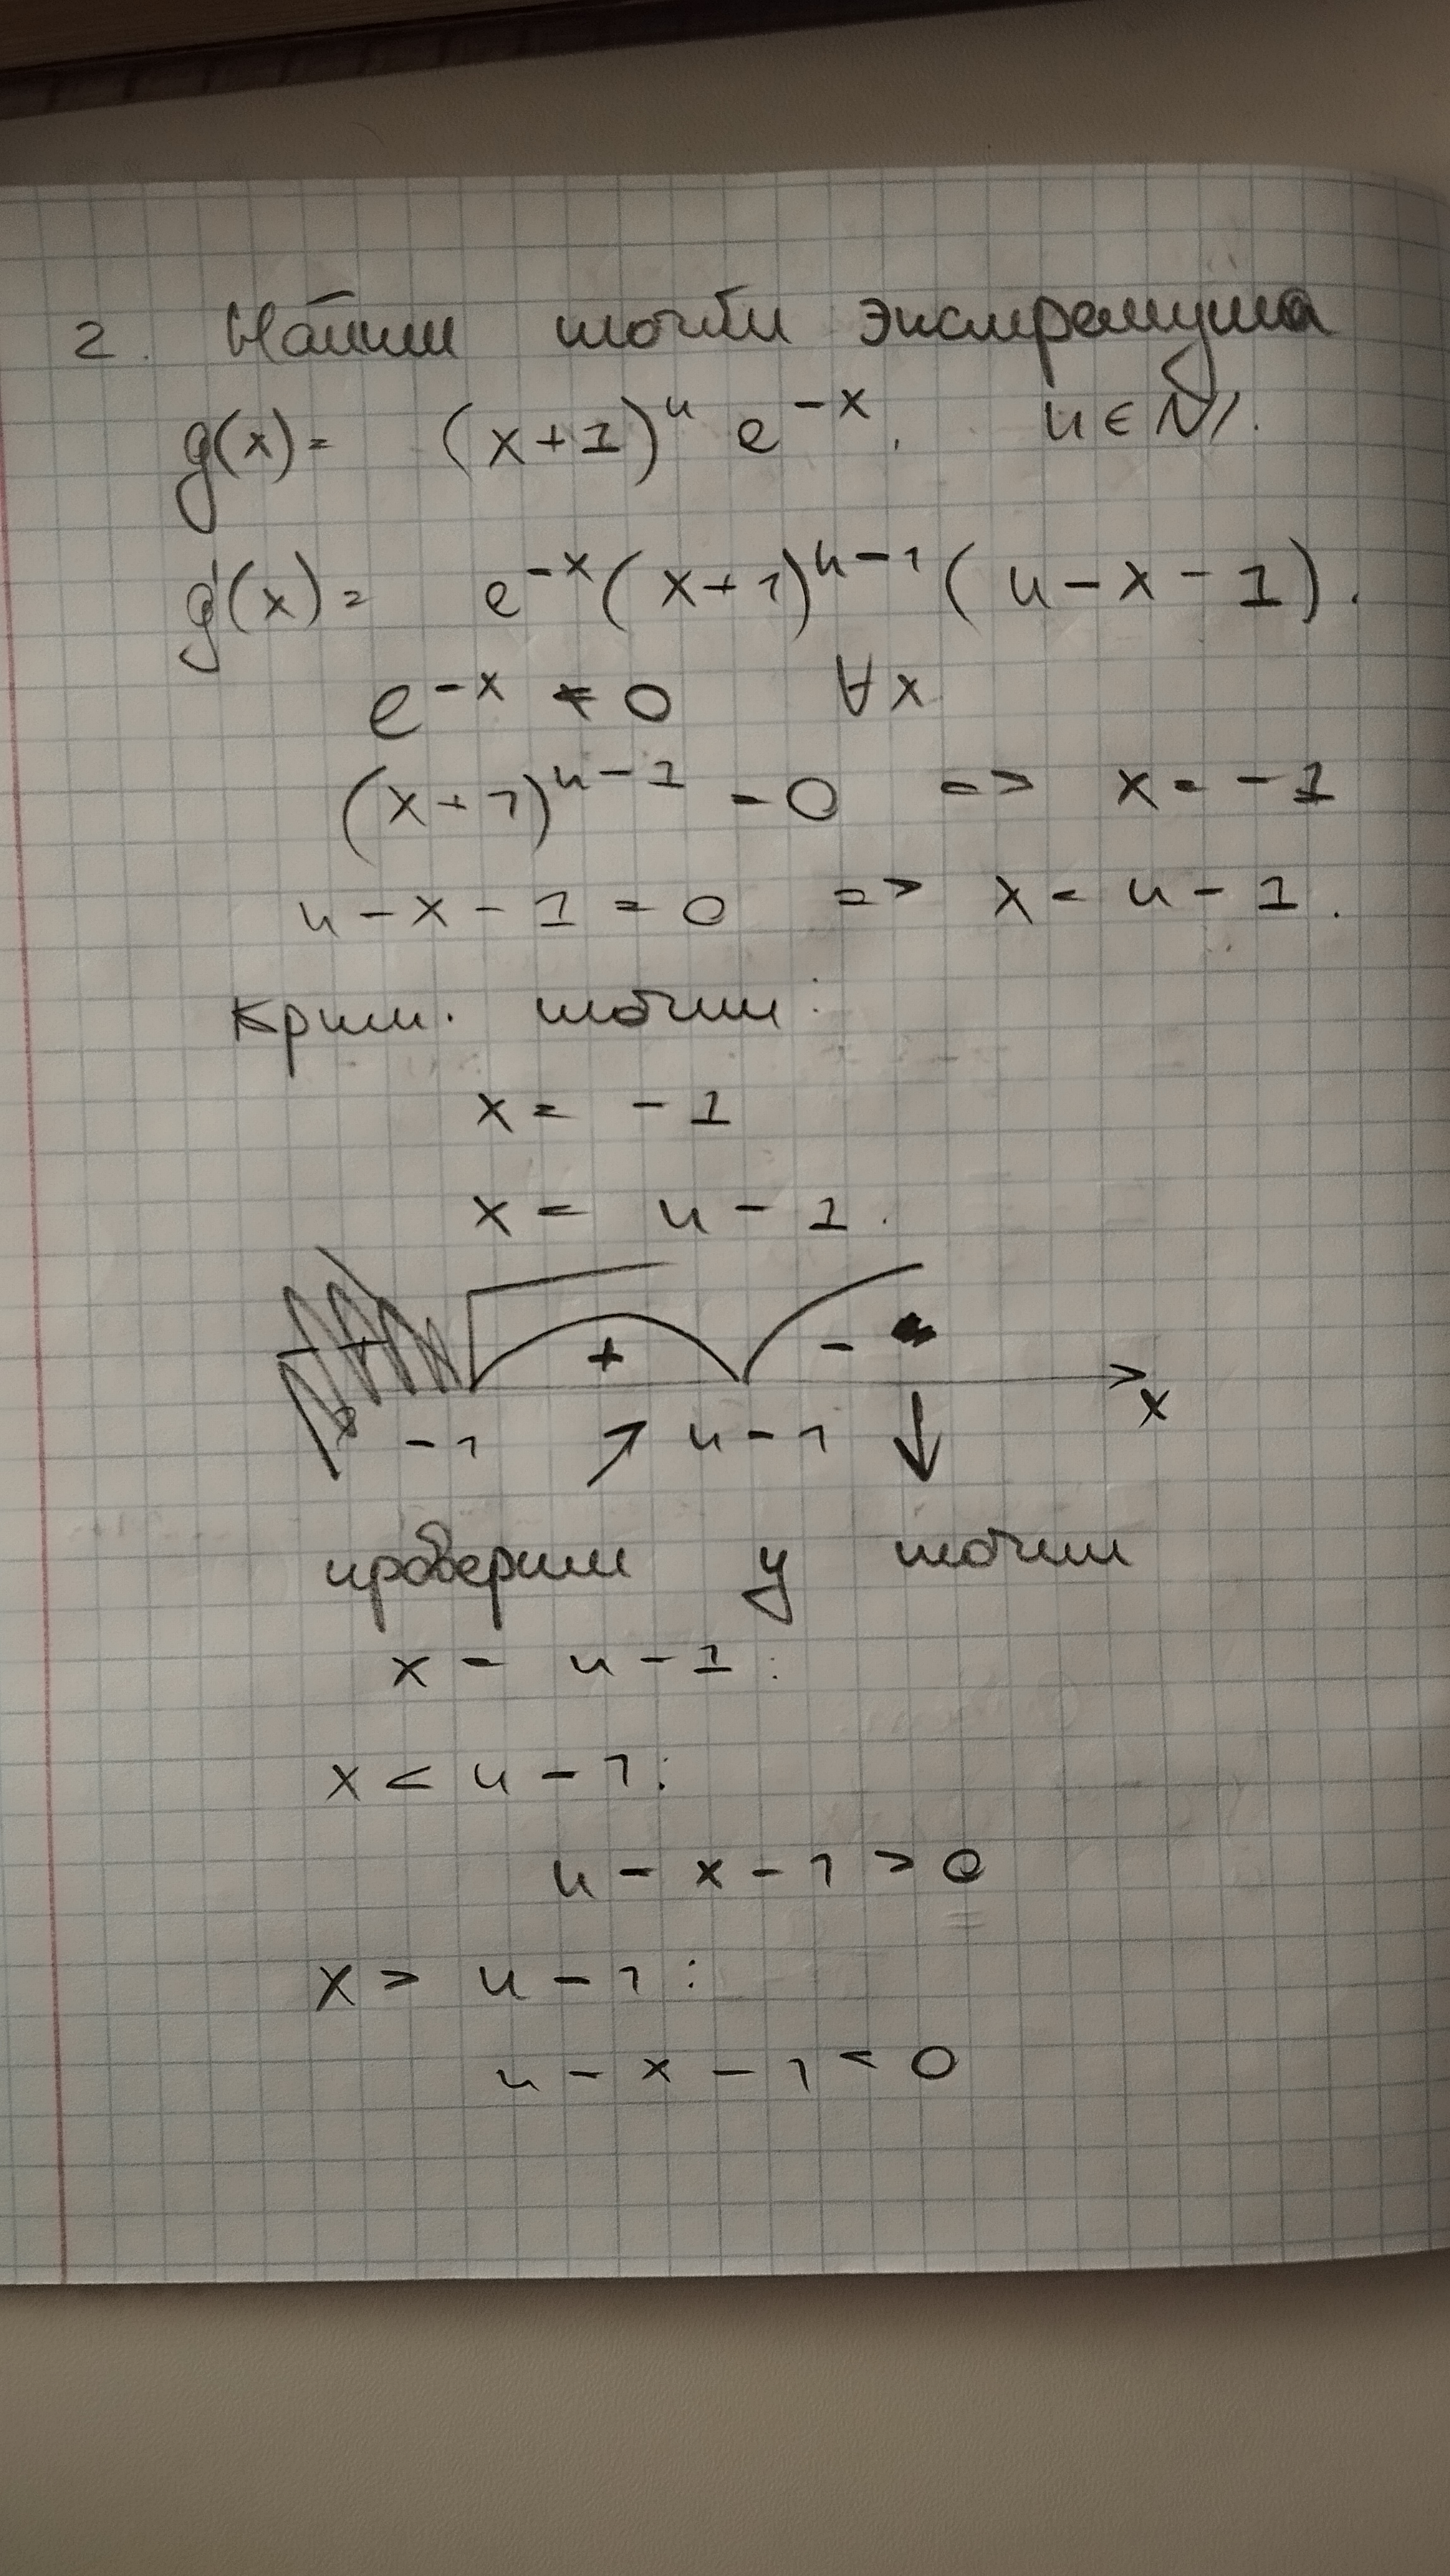 2. Найти точки экстремума
g(x) = (x+1)ⁿ e^{-x}, n ∈ ℕ.
g'(x) = e^{-x}(x+1)^{n-1}(n-x-1).
e^{-x} ≠ 0 ∀x
(x+1)^{n-1} = 0 => x = -1
n-x-1 = 0 => x = n-1.
Крит. точки:
x = -1
x = n-1.
+ -
-1 ↗ n-1 ↓ x
проверим у точки
x = n-1:
x < n-1:
n-x-1 > 0
x > n-1:
n-x-1 < 0